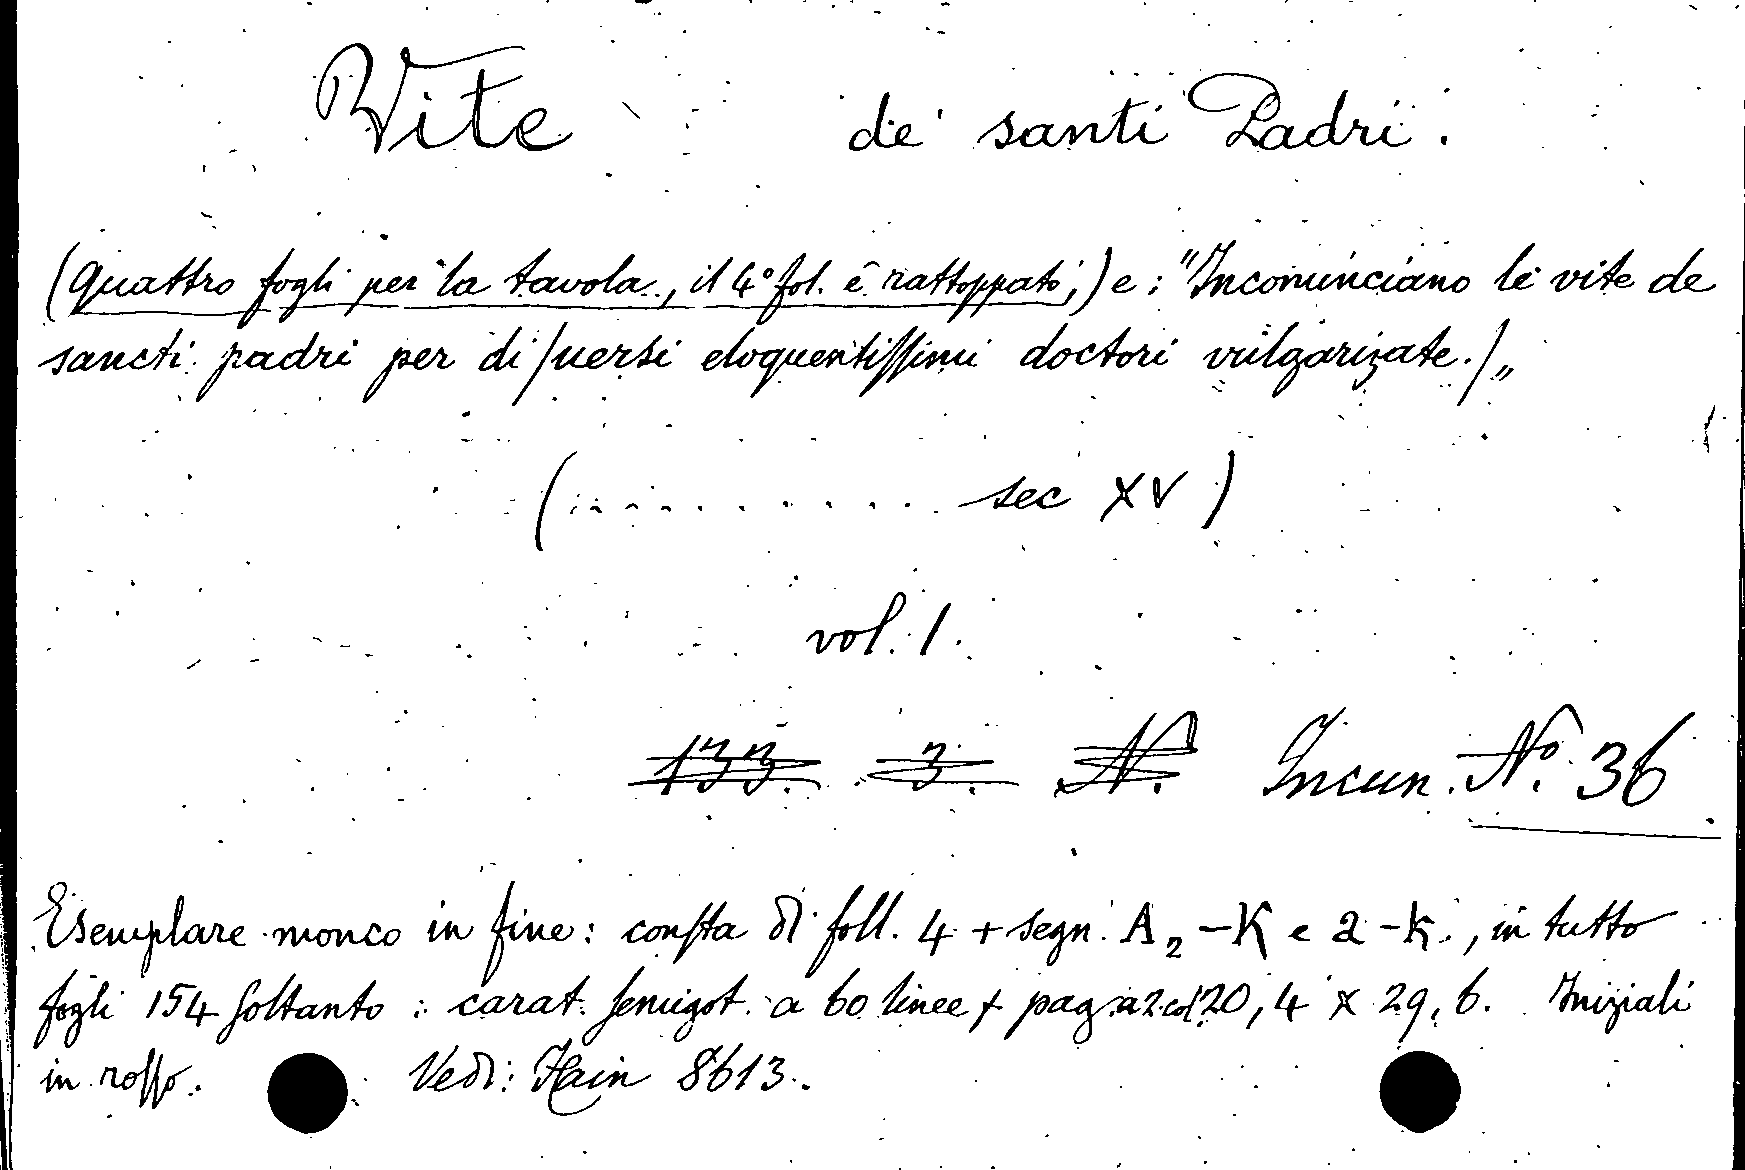 Vite de' santi Padri.
(Quattro fogli per la tavola, il 4° fol. è rattoppato;) e: "Incominciano le vite de
sancti padri per di/uersi eloquentiſſimi doctori vulgarizate./„
(.......... sec XV)
vol. 1.
133. 3. N. Incun. N.° 36
Esemplare monco in fine: conſta di foll. 4 + segn. A2 - K e a - k., in tutto
fogli 154 ſoltanto: carat. ſemigot. a 60 linee x pag. a 2 col 20,4 x 29,6. Iniziali
in roſſo. Vedi: Hain 8613.